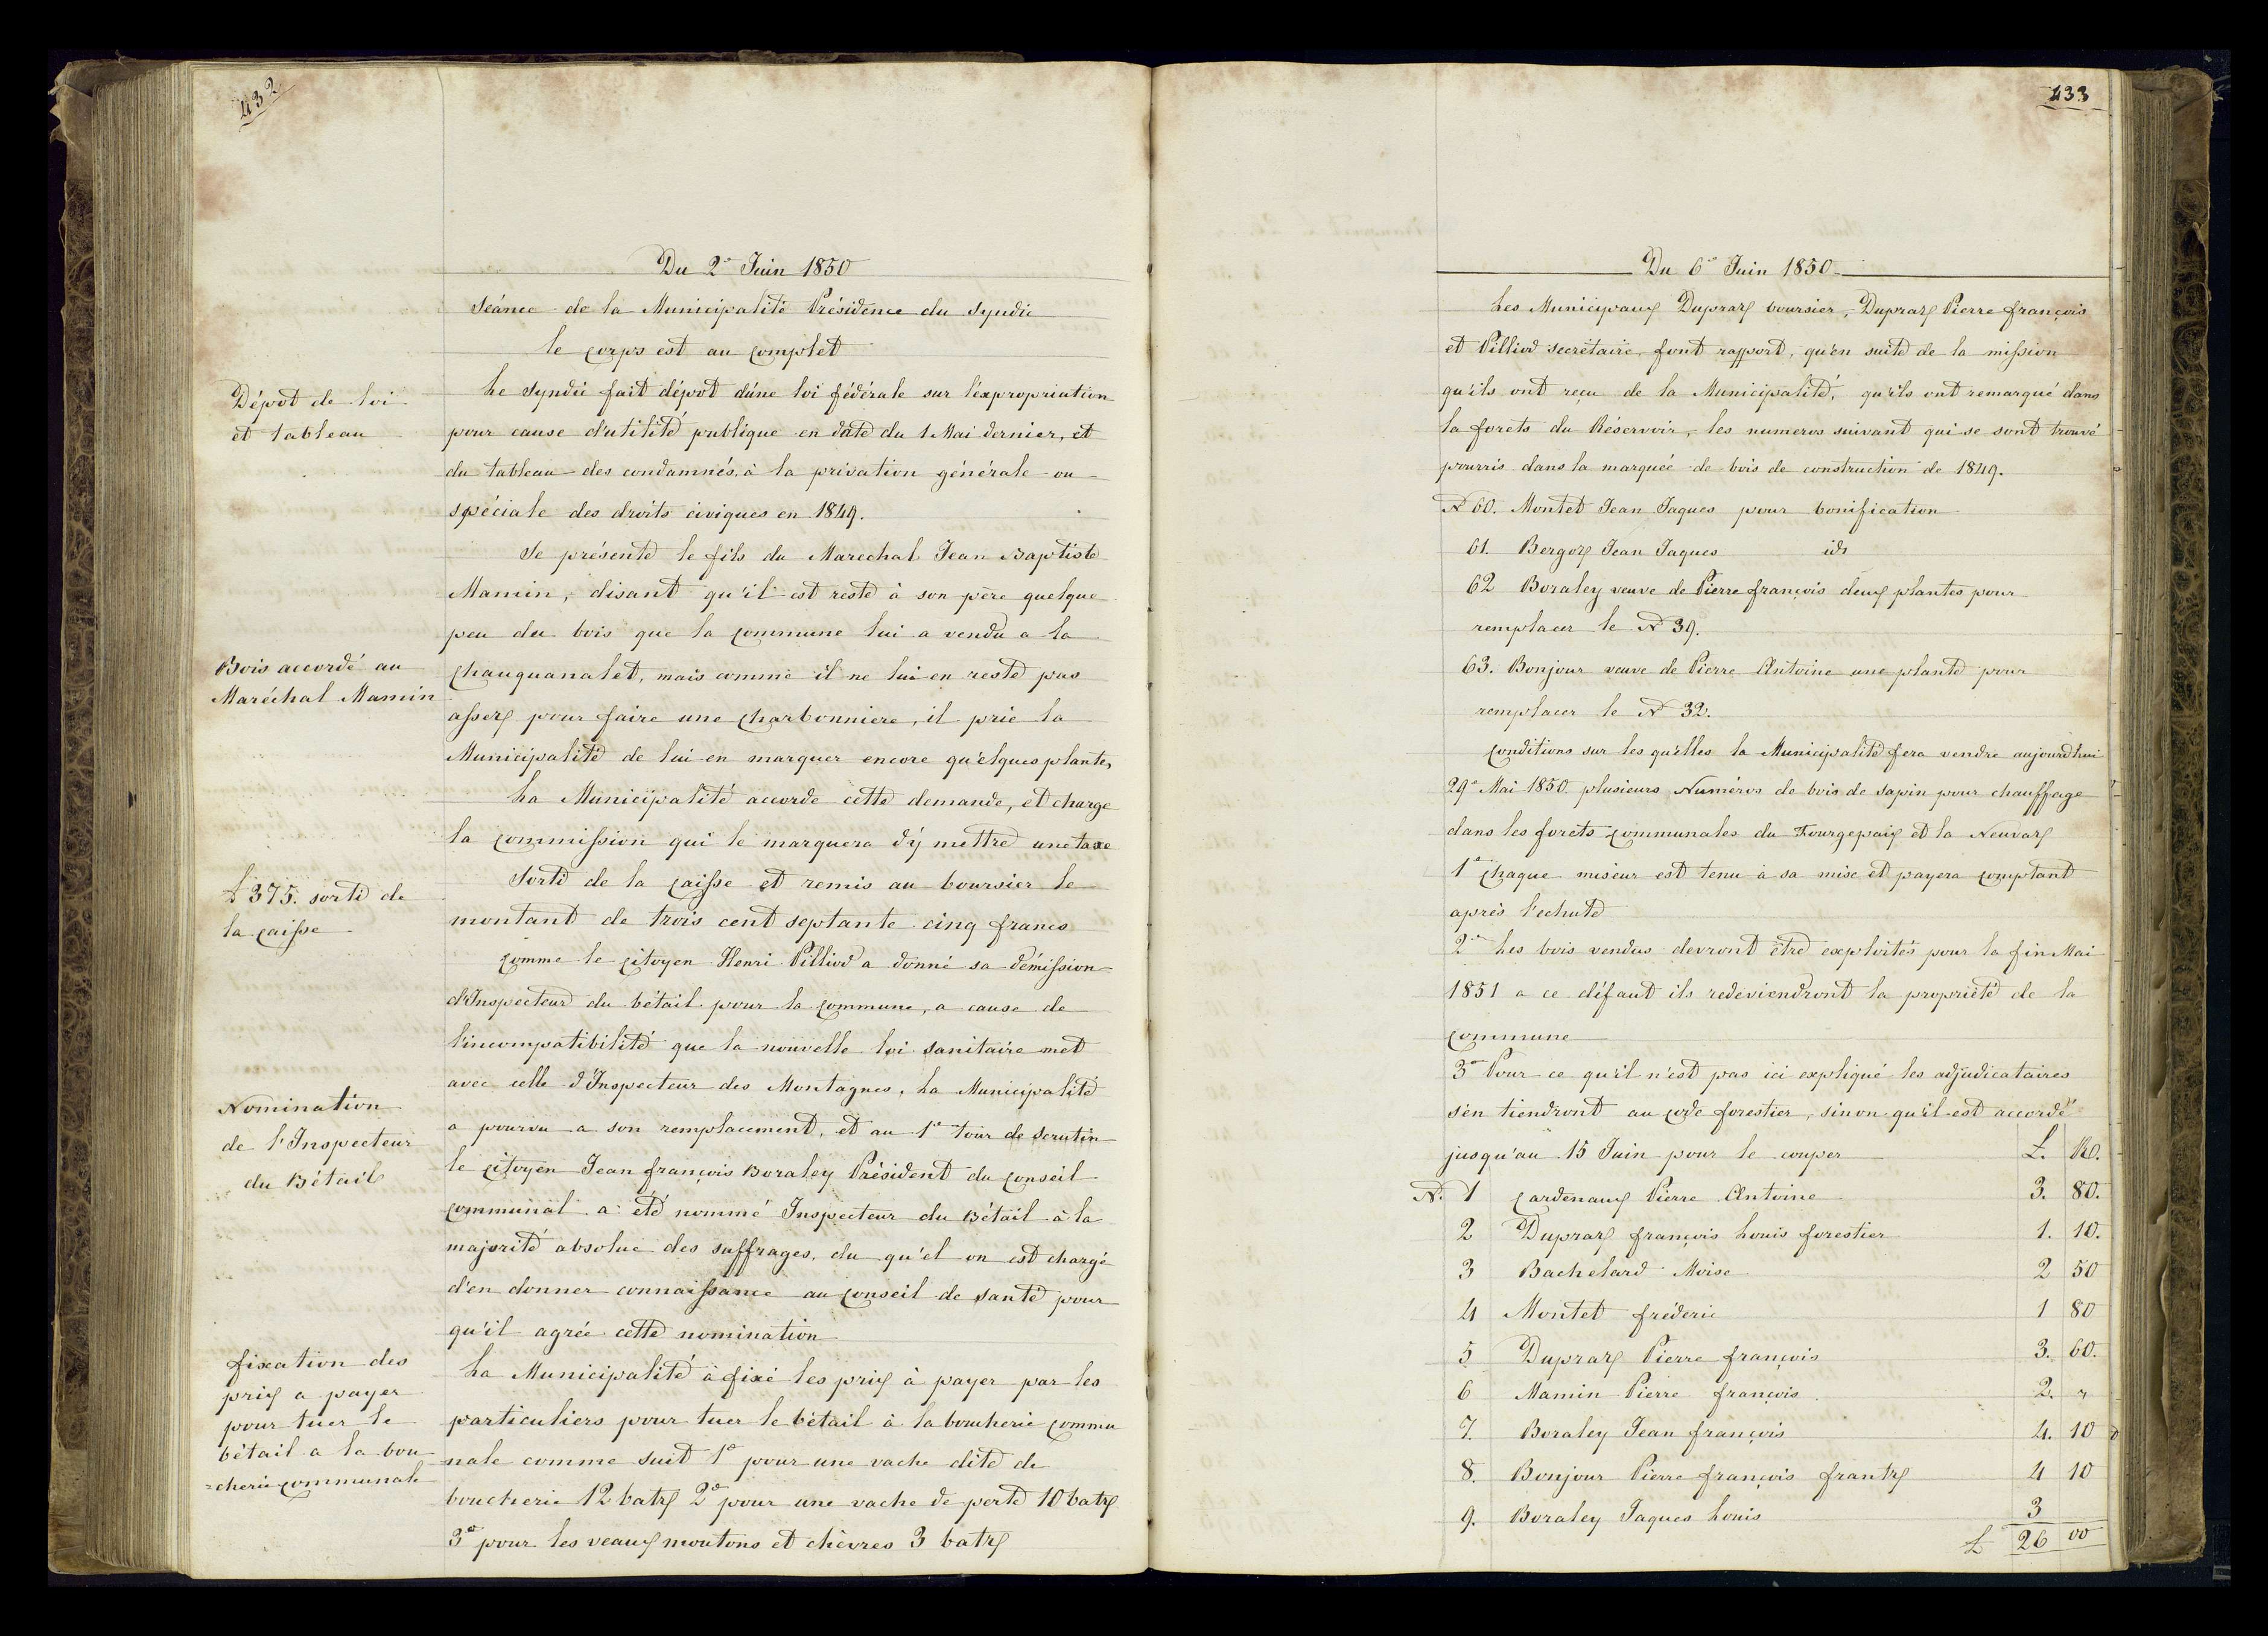 432
Du 2e Juin 1850
Séance de la Municipalité Présidence du Syndic
le corps est au complet
Dépot de loi
et tableau
Le Syndic fait dépot d'une loi fédérale sur l'expropriation
pour cause d'utilité publique en date du 1 Mai dernier, et
du tableau des condamnés à la privation générale ou
spéciale des droits civiques en 1849.
Se présente le fils du Marechal Jean Baptiste
Mamin, disant qu'il est resté à son père quelque
peu du bois que la commune lui a vendu a la
Bois accordé au
Maréchal Mamin
Chauquanalet, mais comme il ne lui en reste pas
assez pour faire une charbonniere, il prie la
Municipalité de lui en marquer encore quelques plantes
La Municipalité accorde cette demande, et charge
la commission qui le marquera d'y mettre une taxe
£ 375. sorti de
la caisse
Sorti de la caisse et remis au boursier le
montant de trois cent septante cinq francs
Comme le citoyen Henri Pilliod a donné sa démission
d'Inspecteur du bétail pour la commune, a cause de
l'incompatibilité que la nouvelle loi sanitaire met
avec celle d'Inspecteur des Montagnes, La Municipalité
Nomination
de l'Inspecteur
du Bétail
a pourvu a son remplacement, et au 1e tour de scrutin
le citoyen Jean françois Boraley Président du conseil
communal a été nommé Inspecteur du Bétail à la
majorité absolue des suffrages, du qu'el on est chargé
d'en donner connaissance au conseil de santé pour
qu'il agrée cette nomination
fixation des
prix a payer
pour tuer le
bétail a la bou
=cherie communale
La Municipalité à fixé les prix à payer par les
particuliers pour tuer le bétail à la boucherie commu
nale comme suit 1e pour une vache dite de
boucherie 12 batz 2e pour une vache de perte 10 batz
3e pour les veaux moutons et chèvres 3 batz
433
Du 6e Juin 1850
Les Municipaux Dupraz boursier, Dupraz Pierre françois
et Pilliod secrétaire, font rapport, qu'en suite de la mission
qu'ils ont reçu de la Municipalité, qu'ils ont remarqué dans
la forets du Réservoir, les numeros suivant qui se sont trouvé
pourris dans la marquée de bois de construction de 1849.
No 60. Montet Jean Jaques pour bonification
61. Bergoz Jean Jaques id
62 Boraley veuve de Pierre françois deux plantes pour
remplacer le No 39.
63. Bonjour veuve de Pierre Antoine une plante pour
remplacer le No 32.
Conditions sur les qu'elles la Municipalité fera vendre aujourd'hui
29e Mai 1850 plusieurs Numéros de bois de sapin pour chauffage
dans les forets communales du Fourgepaix et la Neuvaz
1e Chaque miseur est tenu à sa mise et payera comptant
après l'echute
2e Les bois vendus devront être exploités pour la fin Mai
1851 a ce défaut ils redeviendront la propriété de la
commune
3e Pour ce qu'il n'est pas ici expliqué les adjudicataires
s'en tiendront au code forestier, sinon qu'il est accordé
jusqu'au 15 Juin pour le couper £. Rp.
No. 1 Cardenaux Pierre Antoine 3. 80.
2 Dupraz françois Louis forestier 1. 10.
3 Bachelard Moise 2 50
4 Montet fréderic 1 80
5 Dupraz Pierre françois 3. 60.
6 Mamin Pierre françois 2. "
7. Boraley Jean françois 4. 10
8. Bonjour Pierre françois frantz 4 10
9. Boraley Jaques Louis 3
£ 26 00